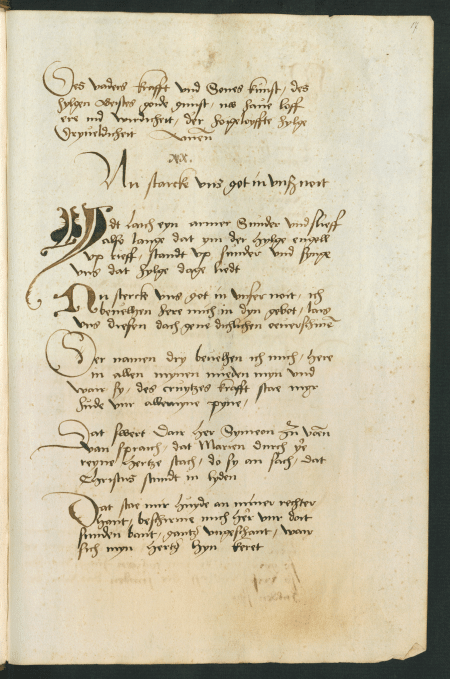 Des vaders krafft vnd Sones kunst, des
hylgen Geistes goide gunst, na haue loff
ere ind wirdicheit, der hogeloyffte hylge
Dryueldicheit Amen
xx.
Nu starcke vns got in vnß noit
Idt lach eyn armer Sunder vnd slieff
also lange dat ym der hylge engell
vp rieff, standt vp sunder vnd synge
vns dat hylge dage liedt
Nu sterck vns got in vnser noit, ich
beuelhen here mich in dyn gebot, lais
vns diesen dach gene
Der namen dry beuelhen ich mich, here
in allen mynen noeden myn vnd
war sy, des cruytzes krafft stae myr
hude vur alle myne pyne,
Dat swert dair her Symeon
van sprach, dat Marien durch yr
reyne hertze stach, do sy an sach, dat
Christus stundt in lyden
Dat stae mir huyde an myner rechter
hant, beschirme mich her vur doit
sunden bant, gantz vngeschant, war
sich myn hertz hyn keret